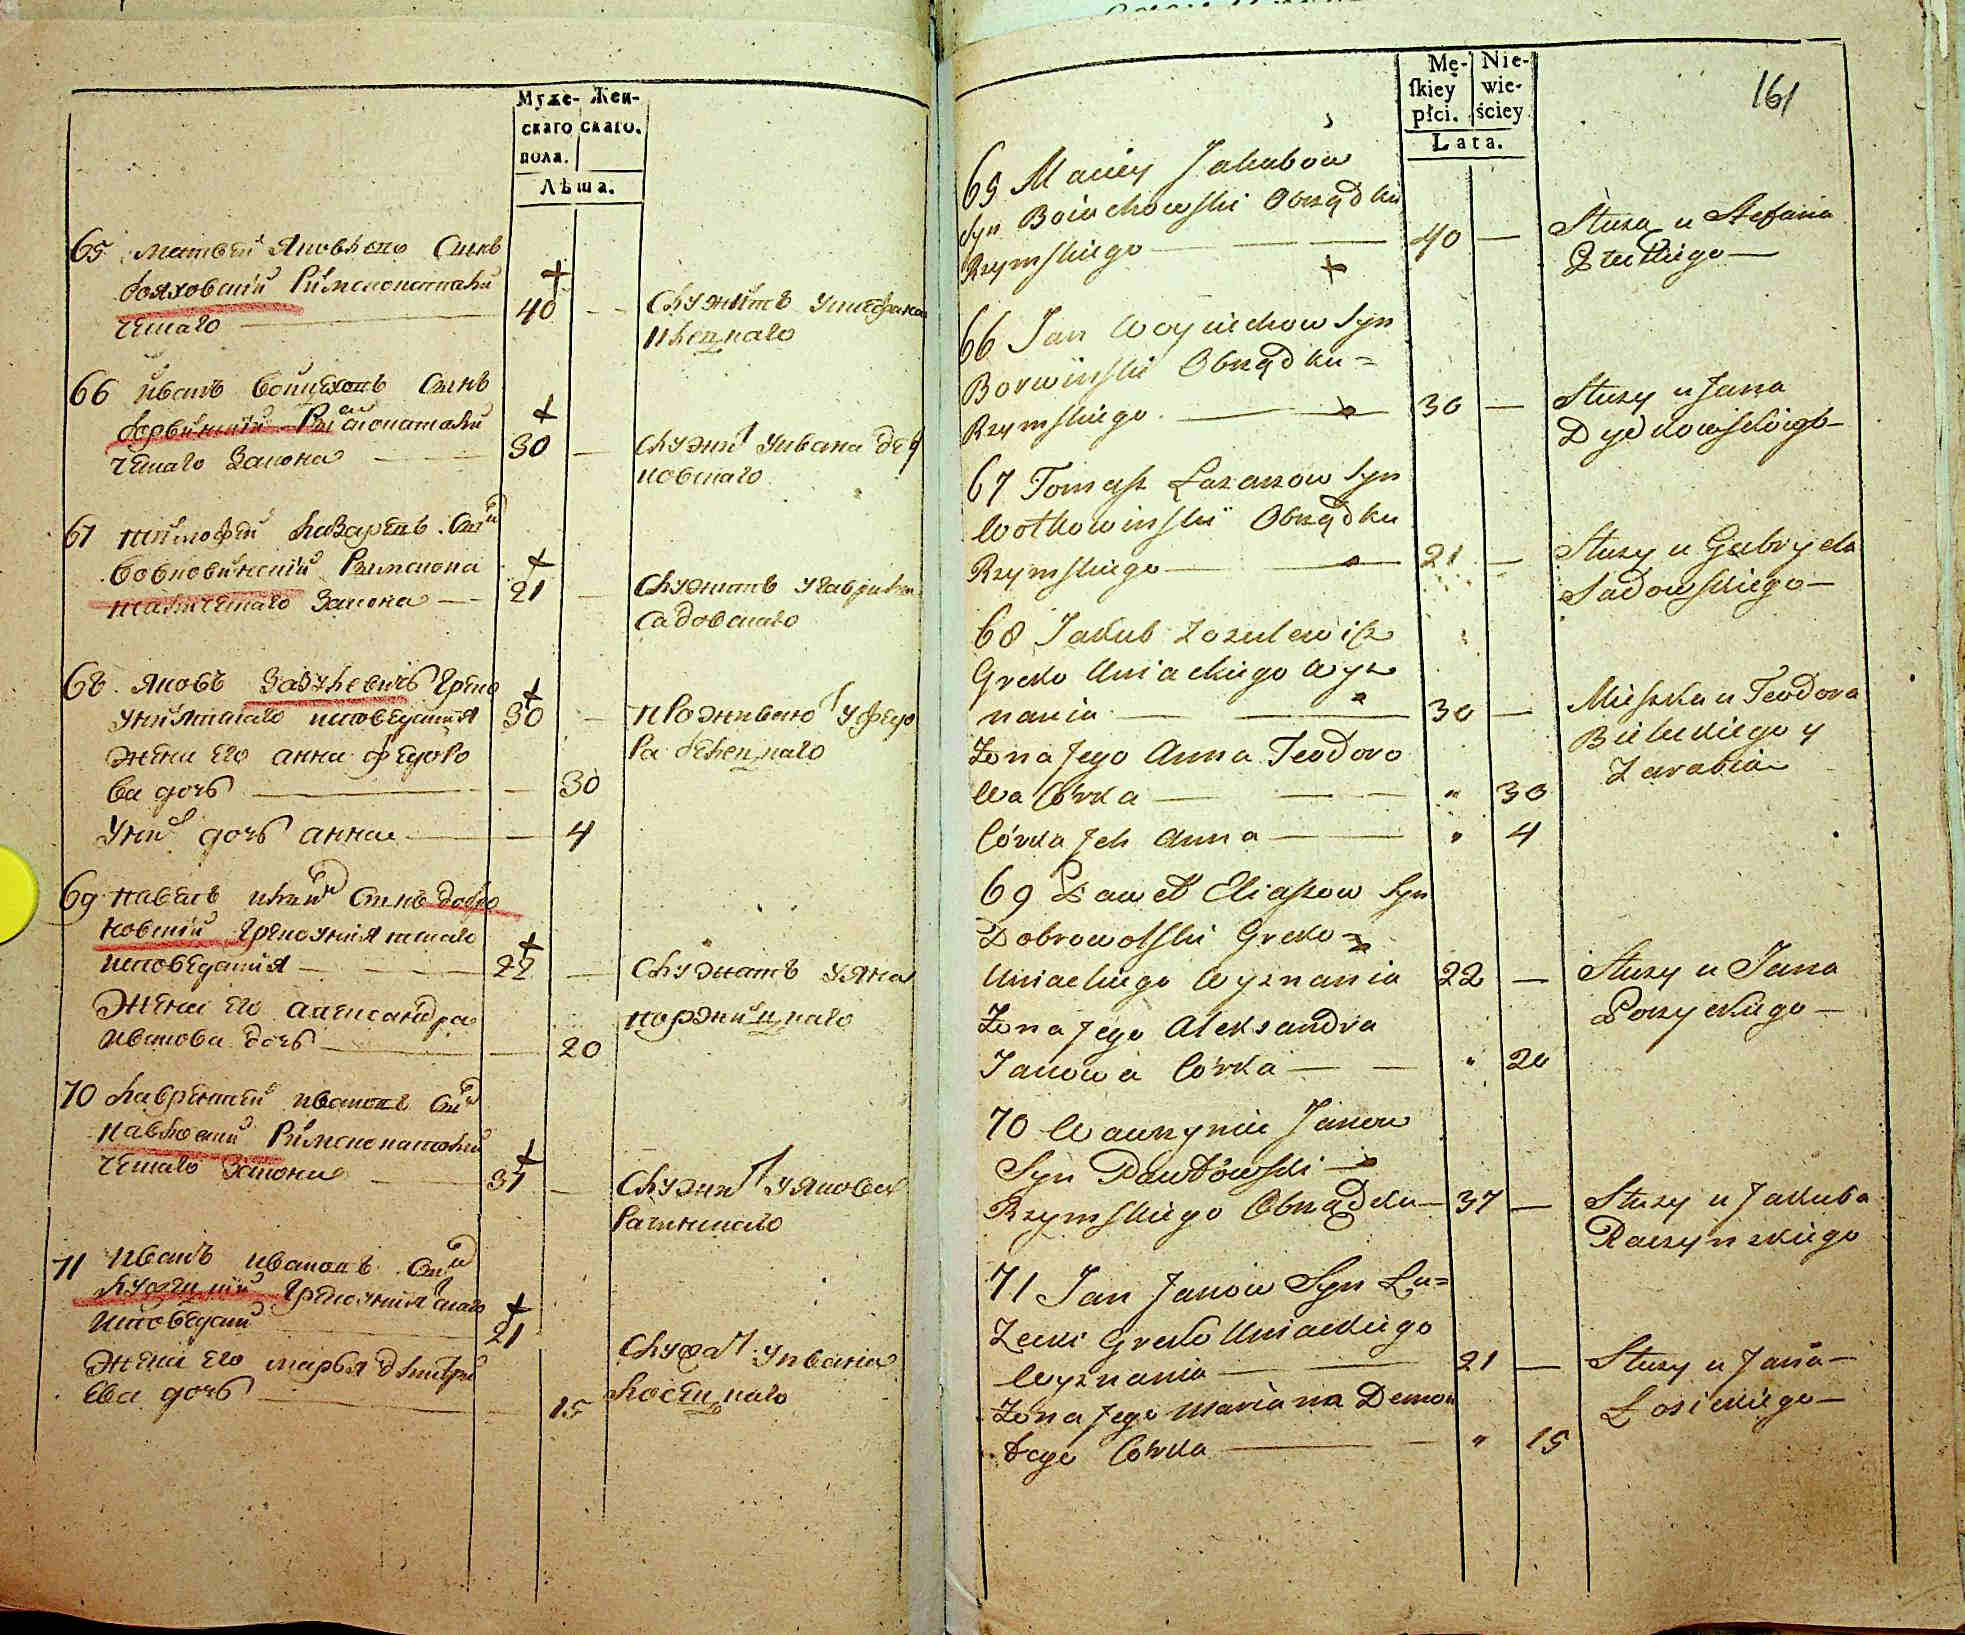 Муже- Жен-
скаго скаго.
пола.
Лѣта.
65 Матвей Яковлевъ Сынъ
Бояховский Римскокатоли
ческаго — 40 — Служитъ у Стефана
66 Иванъ Войцеховъ Сынъ
Борвинский Римскокатоли
ческаго Закона — 30 — Служит у Ивана
новскаго
67 Тимофей Лазаревъ Сын
Вовковинский Римскока
толическаго Закона — 21 — Служитъ у Гавриила
Садовскаго
68 Яковъ Зазулевичъ Греко
Униятскаго исповедания 30 — проживает у Федо
ра Белецкаго
Жена его анна Федоро
ва дочь — 30
Уних дочь анна — 4
69 Павелъ Илиин Сынъ Добро
вовский Грекоуниятскаго
исповедания — 22 — Служитъ у Яна
Поржицкаго
Жена его александра
Иванова дочь — 20
70 Лаврентий Ивановъ Сын
Павловский Римскокатоли
ческаго Закона — 37 — Служит у Якова
Рачинскаго
71 Иванъ Ивановъ Сын
Лузецкий Грекоуниятскаго
исповедания 21 Служит у Ивана
Лосицкаго
Жена его Марья Дмитри
ева дочь — 15
161
Mę- Nie-
ſkiey wie-
płci. ściey
Lata.
65 Maciey Jakubow
Syn Boiachowski Obrządku
Rzymskiego — 40 — Służy u Stefana
66 Jan Woyciechow Syn
Borwinski Obrządku =
Rzymskiego — 30 — Służy u Jana
67 Tomasz Łazarzow Syn
Wołkowinski Obrządku
Rzymskiego — 21 — Służy u Gabryela
Sadowskiego —
68 Jakub Zozulewicz
Greko Uniackiego Wyz
nania — 30 — Mieszka u Teodora
Bieleckiego y
Zarabia
Żona Jego Anna Teodoro
wa Córka — " 30
Córka Ich Anna — " 4
69 Paweł Eliaszow Syn
Dobrowolski Greko =
Uniackiego Wyznania 22 — Służy u Jana
Porzyckiego —
Żona Jego Aleksandra
Janowa Córka — " 20
70 Wawrzyniec Janow
Syn Pawłowski
Rzymskiego Obrządku — 37 — Służy u Jakuba
Raczynskiego
71 Jan Janow Syn Łu=
zecki Greko Uniackiego
Wyznania — 21 — Służy u Jana —
Łosickiego —
Żona Jego Marianna
Córka — " 15